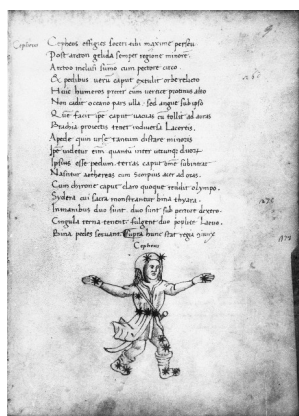 Cepheus
Cepheus effigies soceri tibi maxime perseu
Post arcton gelida semper regione minore
Arctoo melius sumo cum pectore cinto
Ex pedibus caput extulit orbe relicto
Huic humeros preter cum uertice protinus alto
Non cadit oceano pars ulla sed angue sub ipso
Que facit ipse caput uacuas cu tollit ad auras
Brachia prouectis tenet lacertis
A pede quin urse tantum distare minoris
Ipse uidetur eius quantu inter utrunque
Ipsius esse pedum terras caput ante subintrat
Nascitur aethereas cum Scorpius acer ad oras
Cum chirone caput claro quoque reddit olympo
Sydera cui sacra monstrantur bina thyara
In manibus duo sunt duo sunt sub pectore dextro
Cingula terna tenent fulgent duo poplite laeuo
Bina pedes seruant Supra hunc stat regia
Cepheus